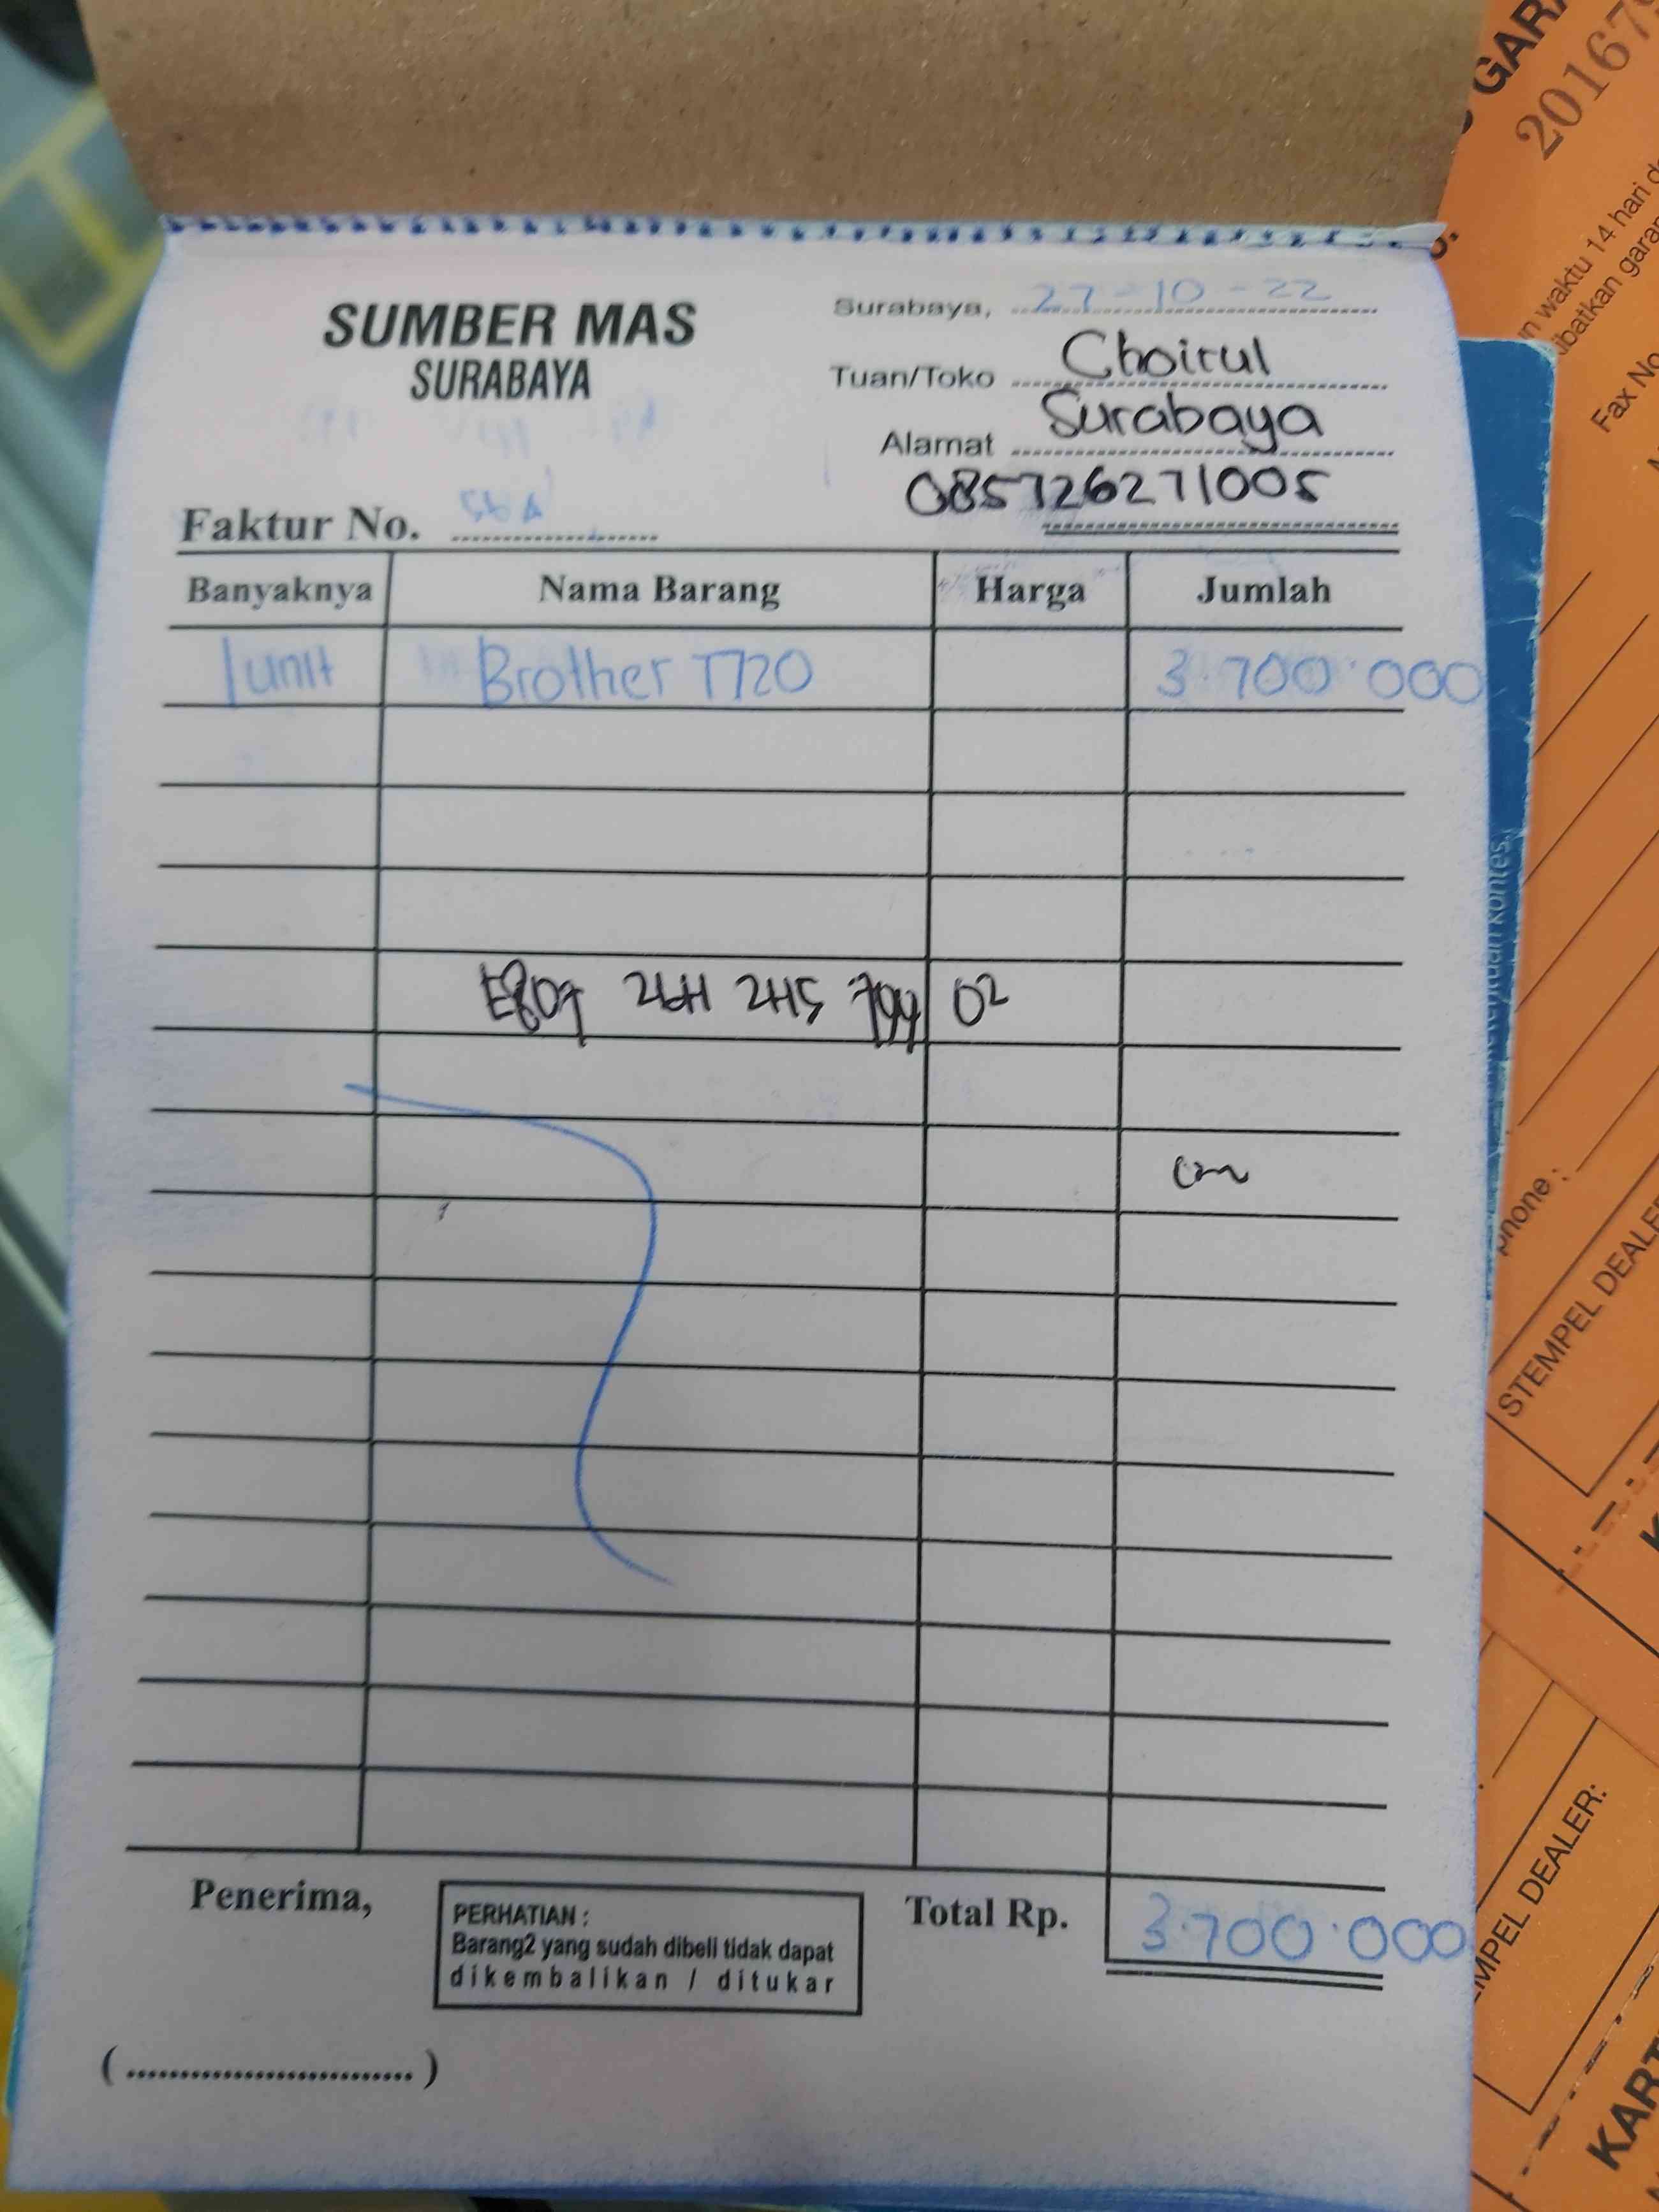 SUMBER MAS
SURABAYA
Surabaya, 27-10-22
Tuan/Toko Choirul
Alamat Surabaya
085726271005
Faktur No.
Banyaknya Nama Barang Harga Jumlah
1 unit Brother T720 3.700.000
02
Penerima,
PERHATIAN :
Barang2 yang sudah dibeli tidak dapat
dikembalikan / ditukar
Total Rp. 3.700.000
(.............................)
20167
waktu 14 hari
Fax No
kontes.
phone :
STEMPEL DEALER
MPEL DEALER:
KART